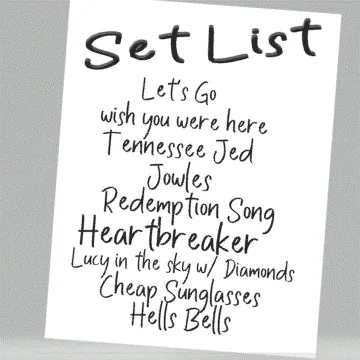 Set List
Let's Go
wish you were here
Tennessee Jed
Jowles
Redemption Song
Heartbreaker
Lucy in the sky w/ Diamonds
Cheap Sunglasses
Hells Bells